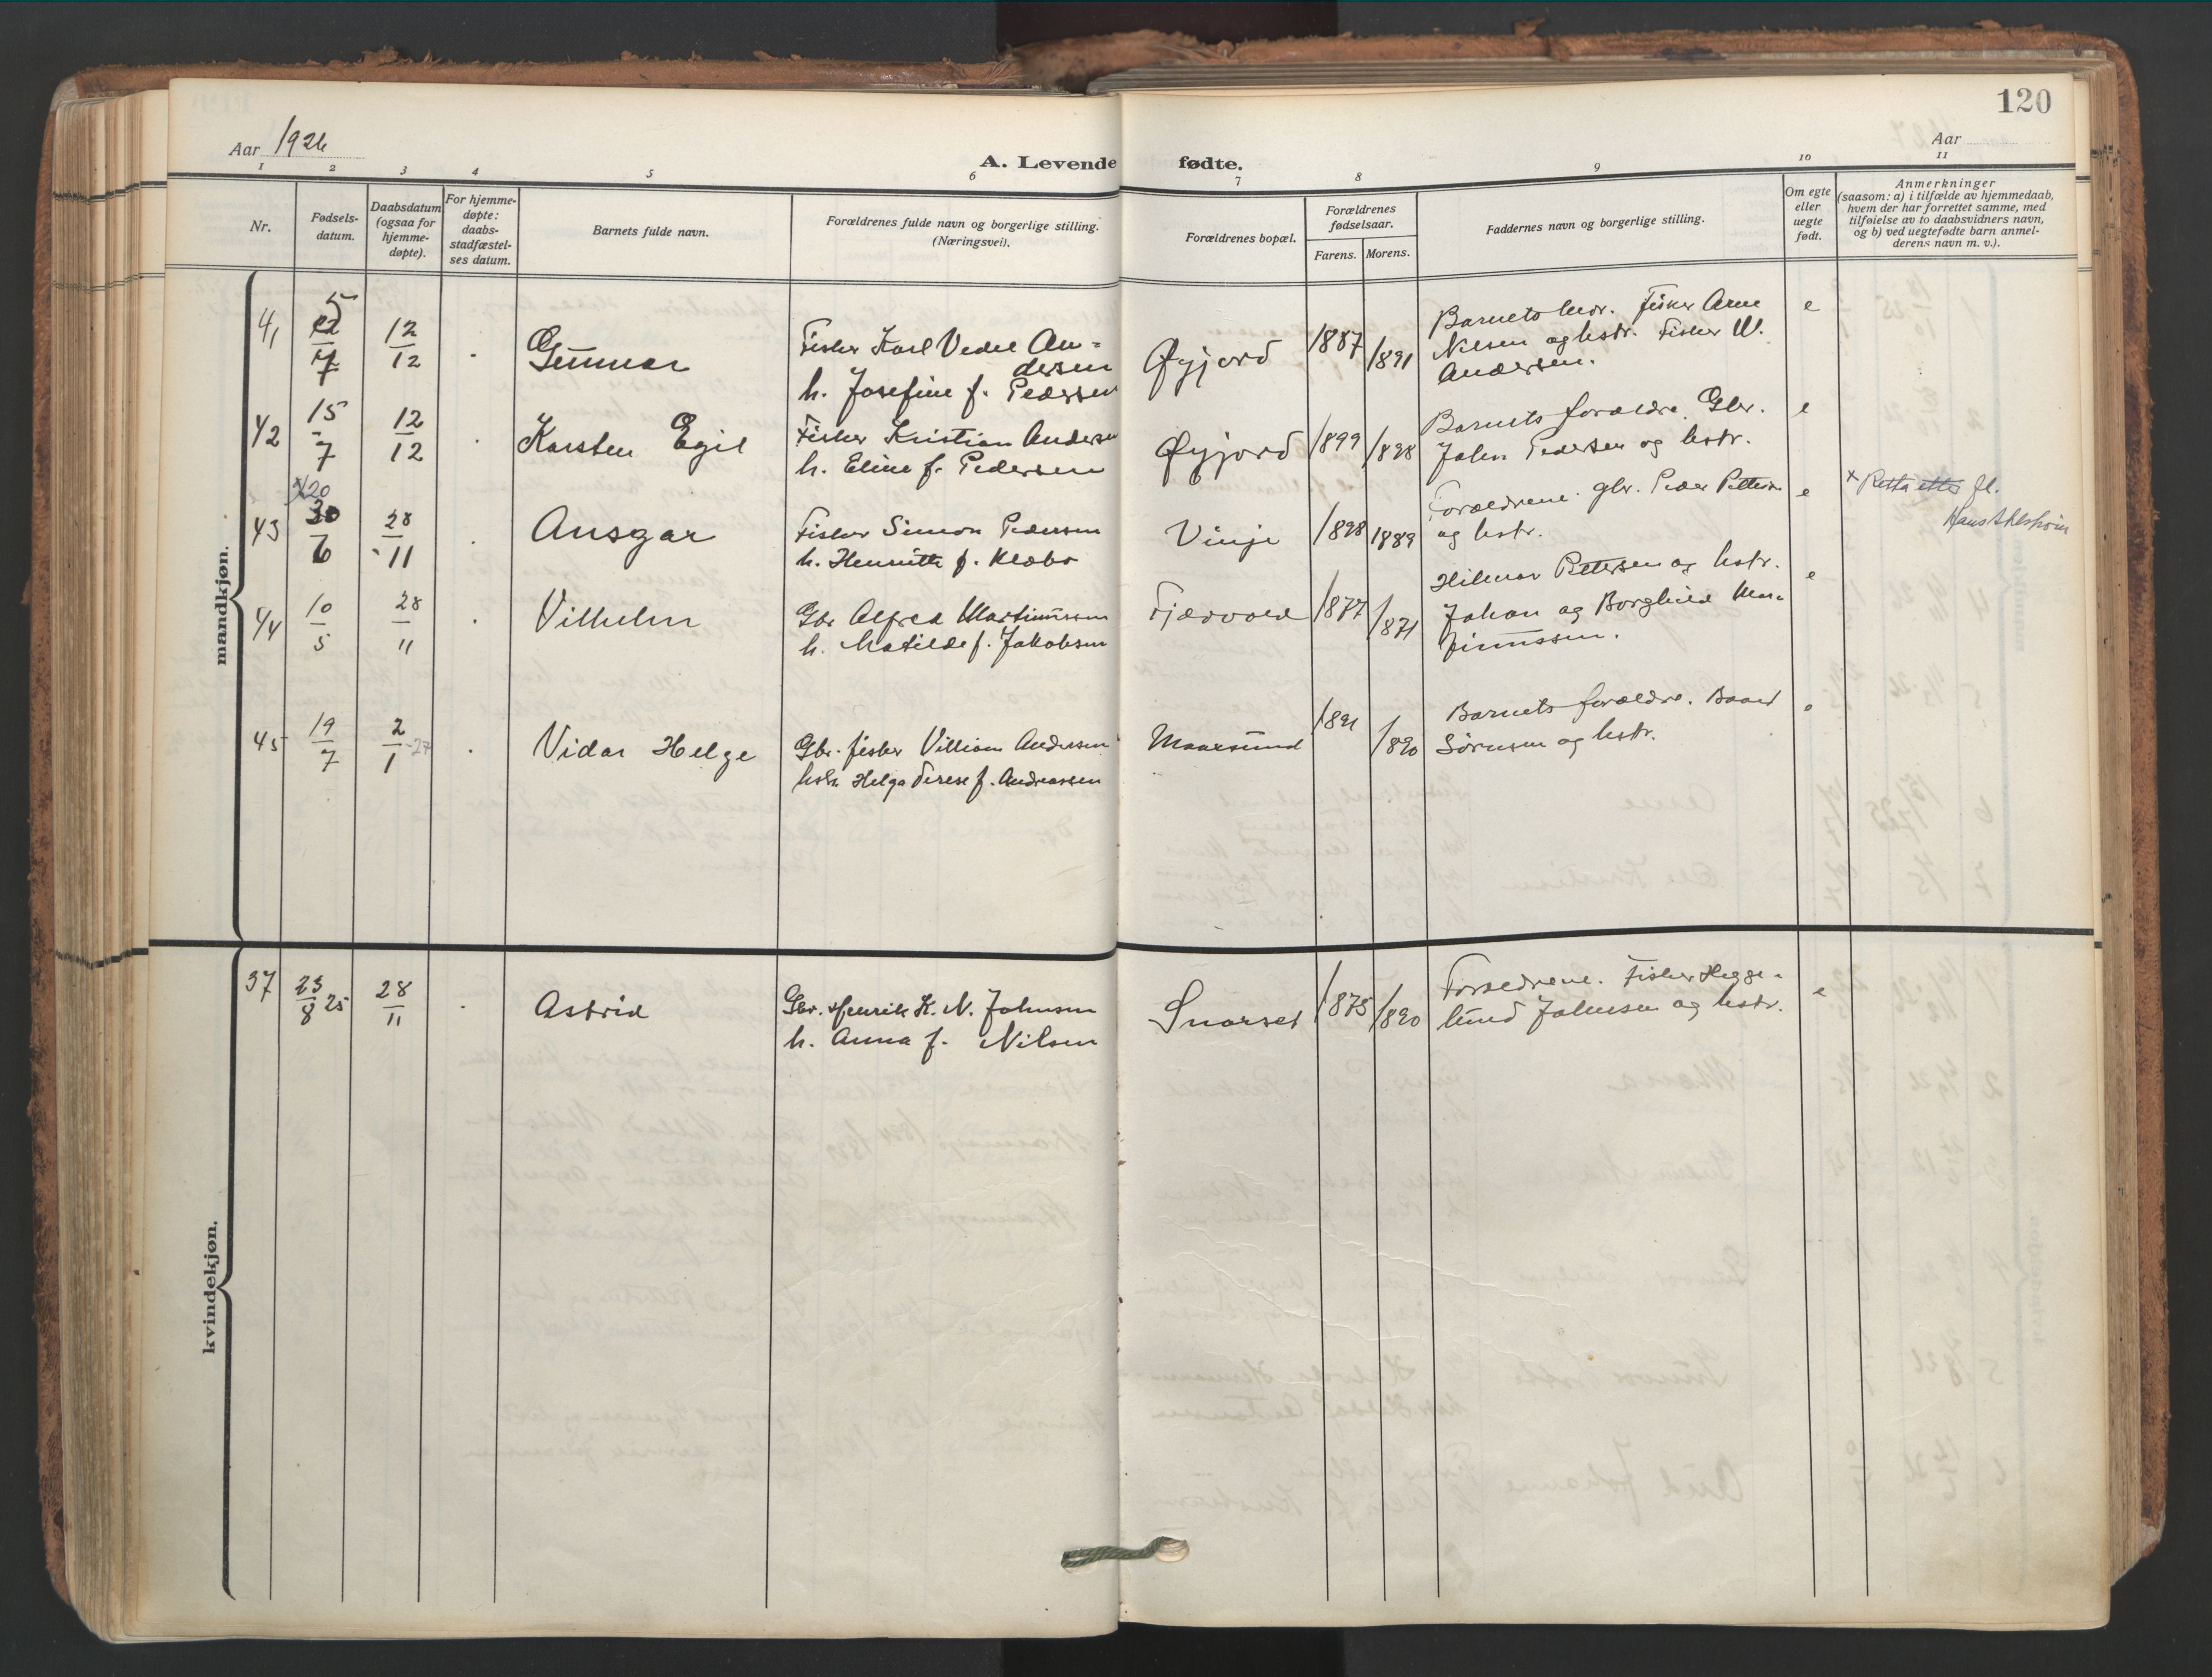 120
Aar 1926
Aar
A. Levende fødte.
1 2 3 4 5 6 7 8 9 10 11
Nr.
Fødsels-
datum.
Daabsdatum
(ogsaa for
hjemme-
døpte).
For hjemme-
døpte:
daabs-
stadfæstel-
ses datum.
Barnets fulde navn.
Forældrenes fulde navn og borgerlige stilling.
(Næringsvei).
Forældrenes bopæl.
Forældrenes
fødselsaar.
Farens. Morens.
Faddernes navn og borgerlige stilling.
Om egte
eller
uegte
født.
Anmerkninger
(saasom: a) i tilfælde av hjemmedaab,
hvem der har forrettet samme, med
tilføielse av to daabsvidners navn,
og b) ved uegtefødte barn anmel-
derens navn m. v.).
mandkjøn.
41
5
7
12
12
Gunnar
Fisker Karl Vedel An=
dersen
h. Josefine f. Pedersen
Øyjord
1887
1891
Barnets mor. Fisker Arne
Nilsen og hstr. Fisker W.
Andersen.
e
42
15
7
12
12
Karsten Egil
Fisker Kristian Andersen
h. Eline f. Pedersen
Øyjord
1899
1898
Barnets forældre. Gbr.
Johan Pedersen og hstr.
e
43
x 20
30
6
28
11
Ansgar
Fisker Simon Pedersen
h. Henritte f. Klæbo
Vinje
1898
1889
Forældrene. gbr. Peder Pettersen
og hstr.
e
x Retta etter fl.
44
10
5
28
11
Vilhelm
Gbr Alfred Martinussen
h. Matilde f. Jakobsen
Fjærvold
1877
1871
Hilmar Pettersen og hstr.
Johan og Borghild Mar=
tinussen.
e
45
19
7
2
1 -27
Vidar Helge
Gbr. fisker Villiam Andersen
hstr Helga Terese f. Andreassen
Maarsund
1891
1890
Barnets forældre. Baard
Sørensen og hstr.
e
kvindekjøn.
37
23
8 25
28
11
Astrid
Gbr. Henrik K. N. Johnsen
h. Anna f. Nilsen
Snarset
1875
1890
Forældrene. Fisker Hegge=
lund Johnsen og hstr.
e